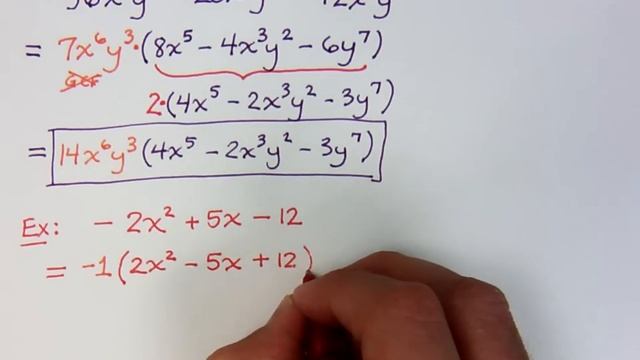 = 7x⁶y³·(8x⁵ − 4x³y² − 6y⁷)
2·(4x⁵ − 2x³y² − 3y⁷)
= 14x⁶y³(4x⁵ − 2x³y² − 3y⁷)
Ex: − 2x² + 5x − 12
= -1(2x² − 5x + 12)